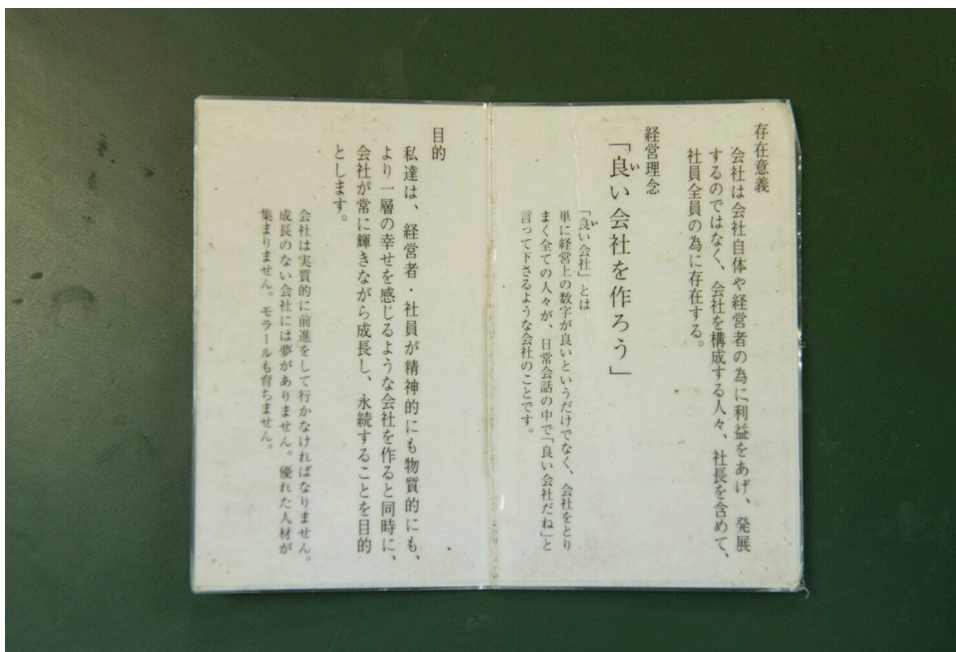 存在意義
会社は会社自体や経営者の為に利益をあげ、発展
するのではなく、会社を構成する人々、社長を含めて、
社員全員の為に存在する。
経営理念
「良い会社を作ろう」
「良い会社」とは
単に経営上の数字が良いというだけでなく、会社をとり
まく全ての人々が、日常会話の中で「良い会社だね」と
言って下さるような会社のことです。
目的
私達は、経営者・社員が精神的にも物質的にも、
より一層の幸せを感じるような会社を作ると同時に、
会社が常に輝きながら成長し、永続することを目的
とします。
会社は実質的に前進をして行かなければなりません。
成長のない会社には夢がありません。優れた人材が
集まりません。モラールも育ちません。